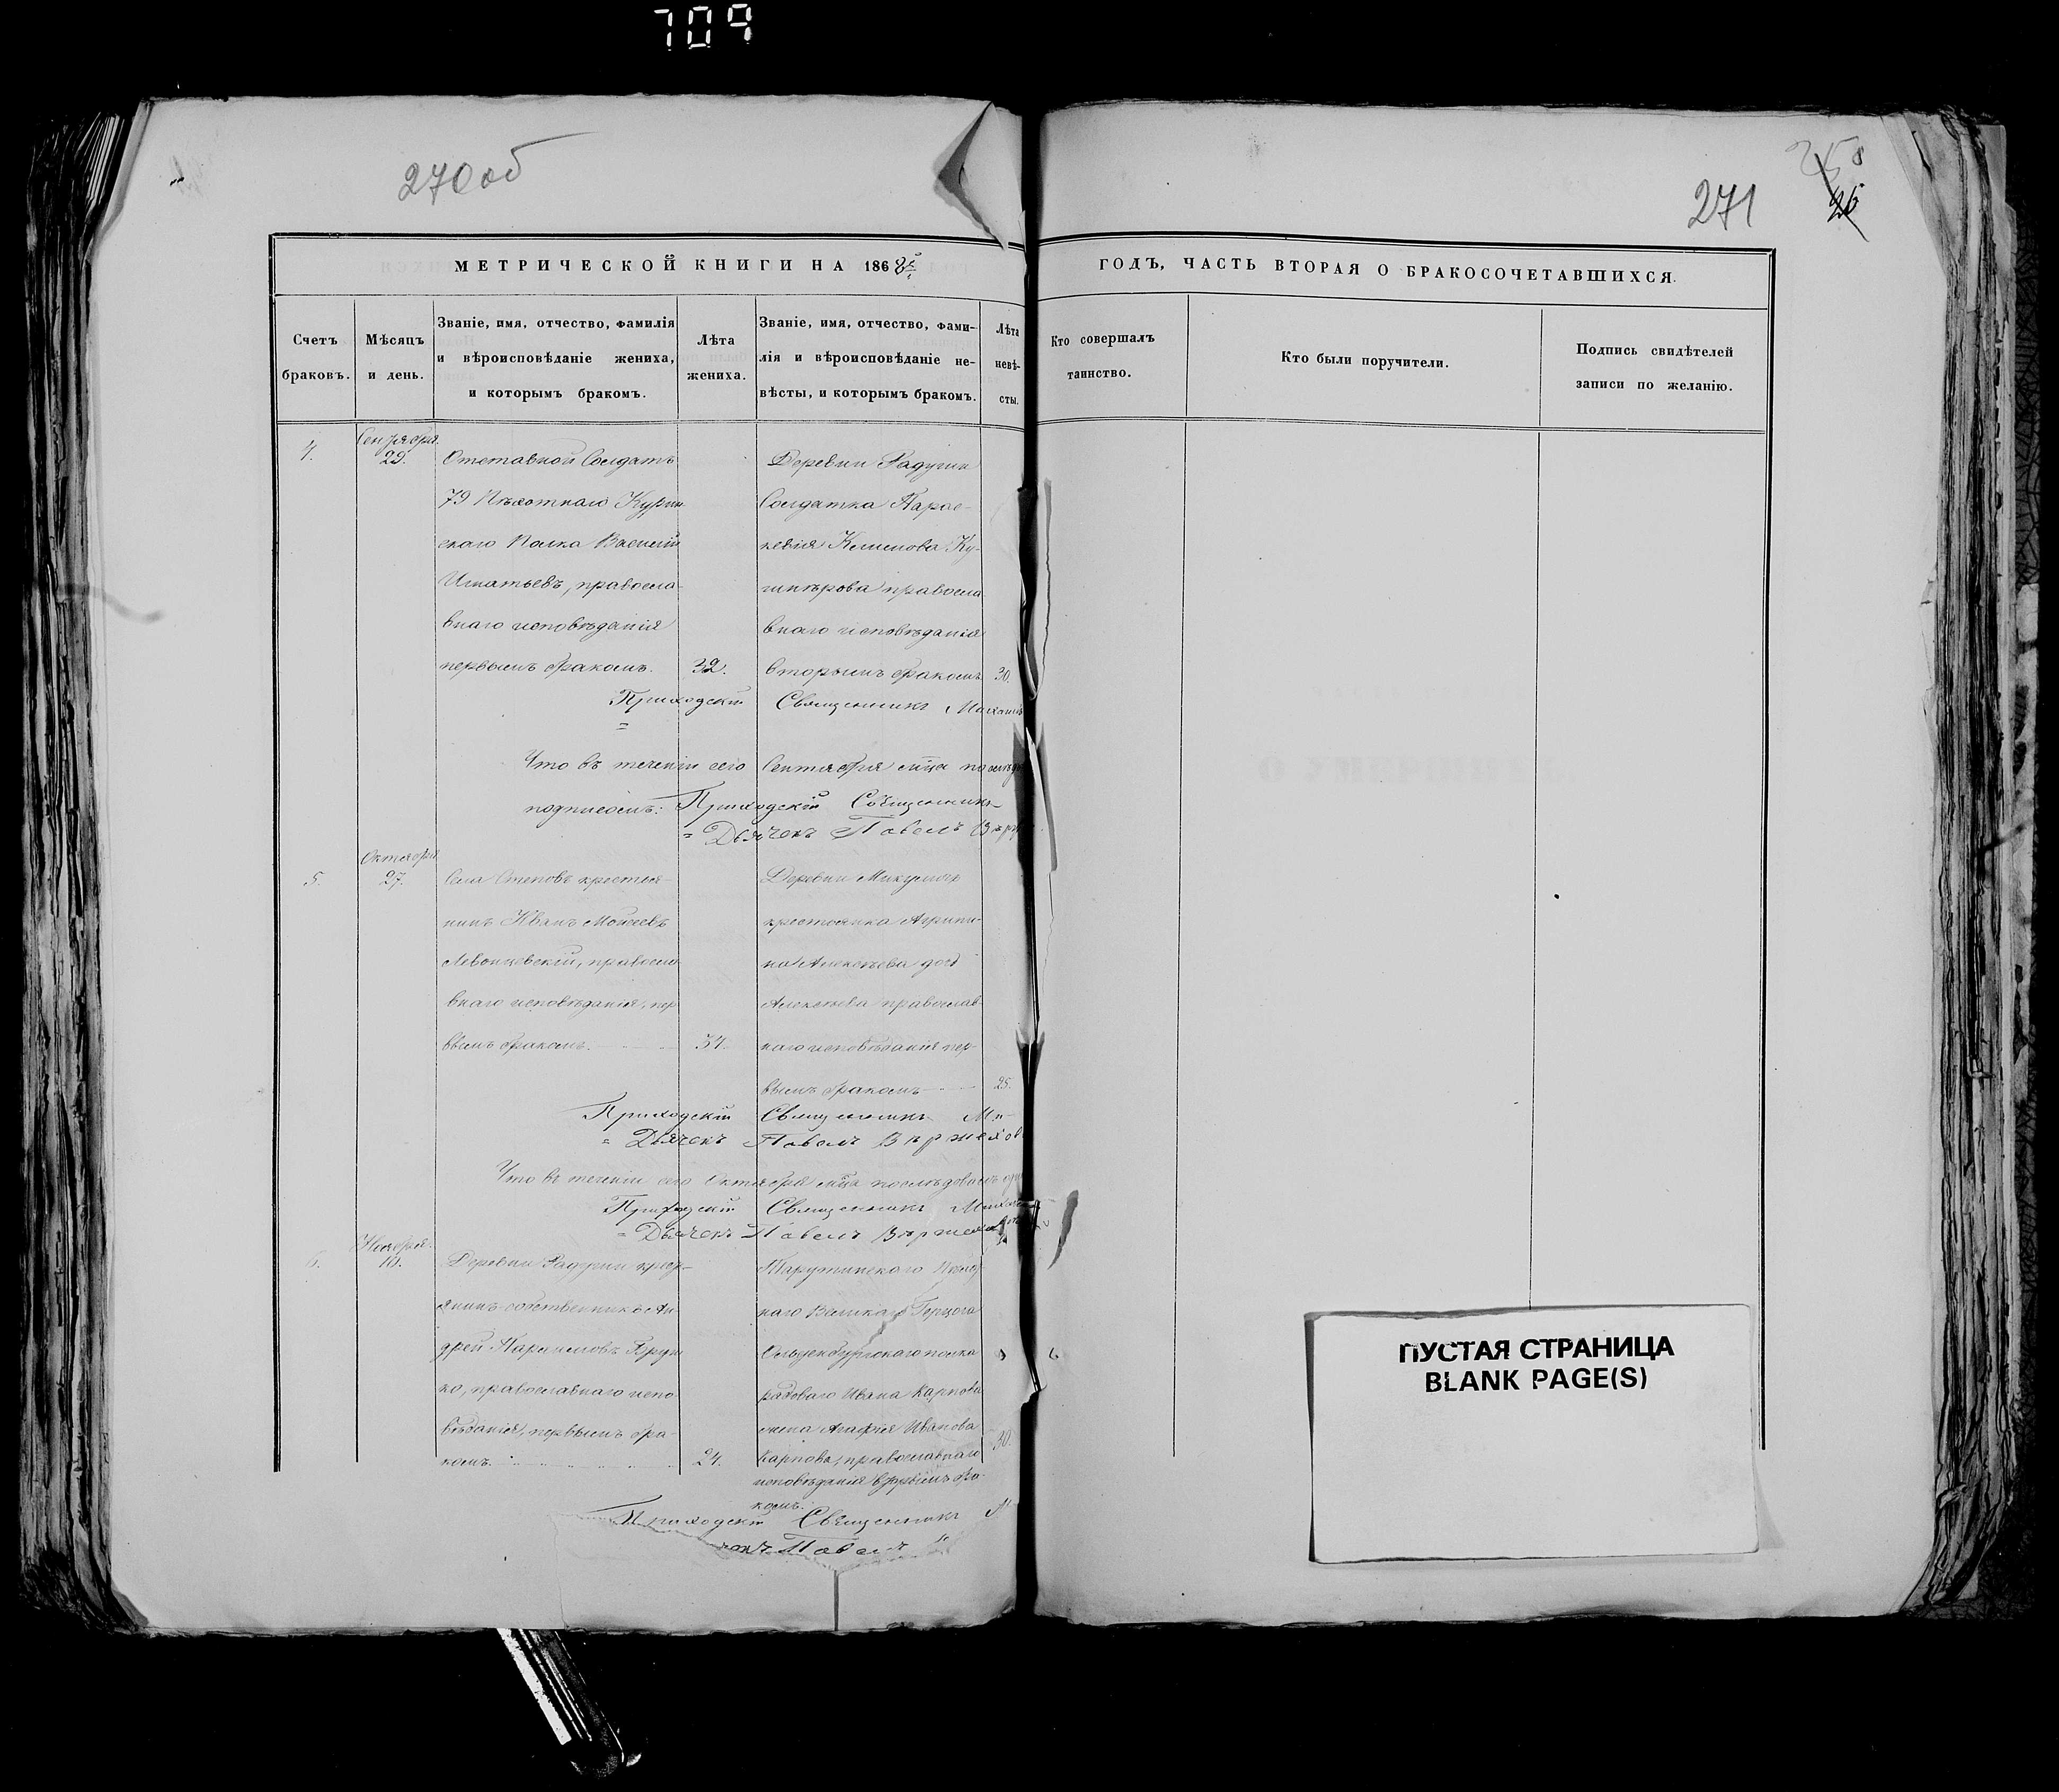 709
270 об
271
26
МЕТРИЧЕСКОЙ КНИГИ НА 1868
ГОДЪ, ЧАСТЬ ВТОРАЯ О БРАКОСОЧЕТАВШИХСЯ.
Счетъ браковъ.
Мѣсяцъ и день.
Званіе, имя, отчество, фамилія
и вѣроисповѣданіе жениха,
и которымъ бракомъ.
Лѣта жениха.
Званіе, имя, отчество, фами-
лія и вѣроисповѣданіе не-
вѣсты, и которымъ бракомъ.
Лѣта невѣ-
сты.
Кто совершалъ
таинство.
Кто были поручители.
Подпись свидѣтелей
записи по желанію.
4.
Сентября
29.
Отставной Солдатъ
79 Пѣхотнаго Курин
скаго Полка Василій
Игнатьевъ, правосла-
внаго исповѣданія
первымъ бракомъ.
32.
Деревни Радуги
Солдатка Парас-
кевія Климова
правосла
внаго исповѣданія
вторымъ бракомъ
30.
Приходскій Священникъ Михаилъ
Что въ теченіи сего Сентября мца послѣд
подписомъ: Приходскій Священникъ
Дьячекъ Павелъ
5.
Октября
27.
Села крестья
нинъ Иванъ Моисеевъ
правосла
внаго исповѣданія, пер
вымъ бракомъ.
34.
Деревни
крестьянка Агрипи-
на Алексѣева дочь
Алексѣева православ
наго исповѣданія пер-
вымъ бракомъ
25.
Приходскій Священникъ Ми-
Дьячекъ Павелъ Вержехов
Что въ теченіи сего Октября мца послѣдовалъ
Приходскій Священникъ Михаилъ
Дьячекъ Павелъ
6.
Ноября
10.
Деревни Радуги крест
янинъ-собственникъ Ан
дрей
ко, православнаго испо
вѣданія, первымъ бра-
комъ.
24.
Тарутинскаго Пѣхот
наго Великаго Герцога
Ольденбургскаго полка
рядоваго Ивана Карпова
жена Агафія Иванова
Карпова, православнаго
исповѣданія вторымъ бра-
комъ.
30.
Приходскій Священникъ М
чекъ Павелъ
ПУСТАЯ СТРАНИЦА
BLANK PAGE(S)